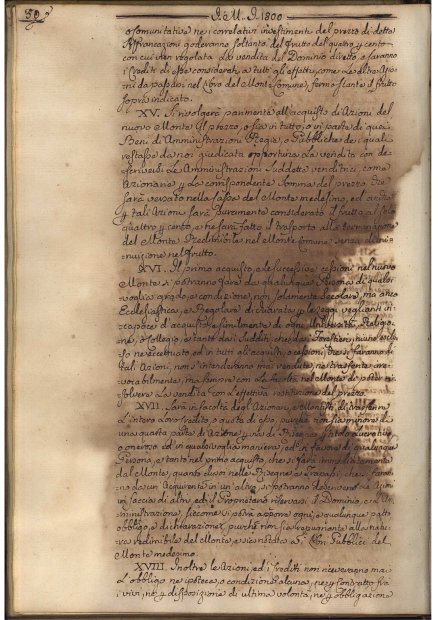 50
I. M. I. 1800
o comunitativa ne i correlativi investimenti del prezzo di dette
Affrancazioni goderanno soltanto del frutto del quatro per cento
con cui vien regolata la vendita del Dominio diretto, e saranno
i Crediti di esse considerati, a tutti gli effetti, come le altre Azio
ni da passarsi nel libro del Monte Comune, fermo stante il frutto
sopra indicato.
XV. Si rivolgerà parimente all'acquisto di Azioni del
nuovo Monte il prezzo, o sia in tutto, o in parte di quei
Beni di Amministrazioni Regie, o Pubbliche de i quali
restasse da noi giudicata opportuna la vendita con de
scriversi le Amministrazioni suddette venditrici, come
Azionarie per la corrispondente somma del prezzo che
sarà versato nella Cassa del Monte medesimo, ed anche
per tali Azioni sarà puramente considerato il frutto al solo
quattro per cento, e ne sarà fatto il trasporto alla
del Monte Redimibile nel Monte Comune senza dimi=
nuizione nel frutto.
XVI. Il primo acquisto, e le successive cessioni nel nuovo
Monte si potranno fare da qualunque Persona di qualsi
voglia grado, e condizione, non solamente secolare, ma anco
Ecclesiastica, e Regolare dichiarata per le leggi veglianti in=
capace d'acquisto, e similmente di ogni Università, Religio
ne, o Collegio, e tanto dai sudditi, che dai Forestieri niuno esclu
so ne eccettuato ed in tutti gli acquisti, e cessioni, che si faranno di
tali Azioni, non s'intenderanno mai vendute, ne trasferite irre
vocabilmente, ma sempre con la facoltà nel Monte di poter ri
solvere la vendita con l'effettiva restituzione del prezzo.
XVII. Sarà in facoltà degli Azionari, e Montisti di trasferire
l'intero loro Credito, o parte di esso, purchè non sia minore di
una quarta parte di Azione per via di Rivegne, per titolo lucrativo
o oneroso, ed in qualsivoglia maniera, ed in favore di qualunque
Persona, e tanto nel primo acquisto, che si farà immediatamente
dal Monte, quanto di poi nelle Rivegne, e Passaggi, che si faran
no da un Acquirente in un altro, si potranno descrivere le Azioni
in faccia di altri, ed il Proprietario riservarsi il Dominio, e l'Am
ministrazione, siccome si potrà apporre ogni, e qualunque patto
obbligo, e dichiarazione, purchè non sia repugnante alla natura
redimibile del Monte, e sia notificata ai Libri Pubblici del
Monte medesimo.
XVIII. Inoltre le Azioni, ed i Crediti non riceveranno mai
l'obbligo ne ipoteca, o condizione alcuna, ne per contratto fra
i vivi, ne per disposizione di ultima volontà, ne per obbligazione